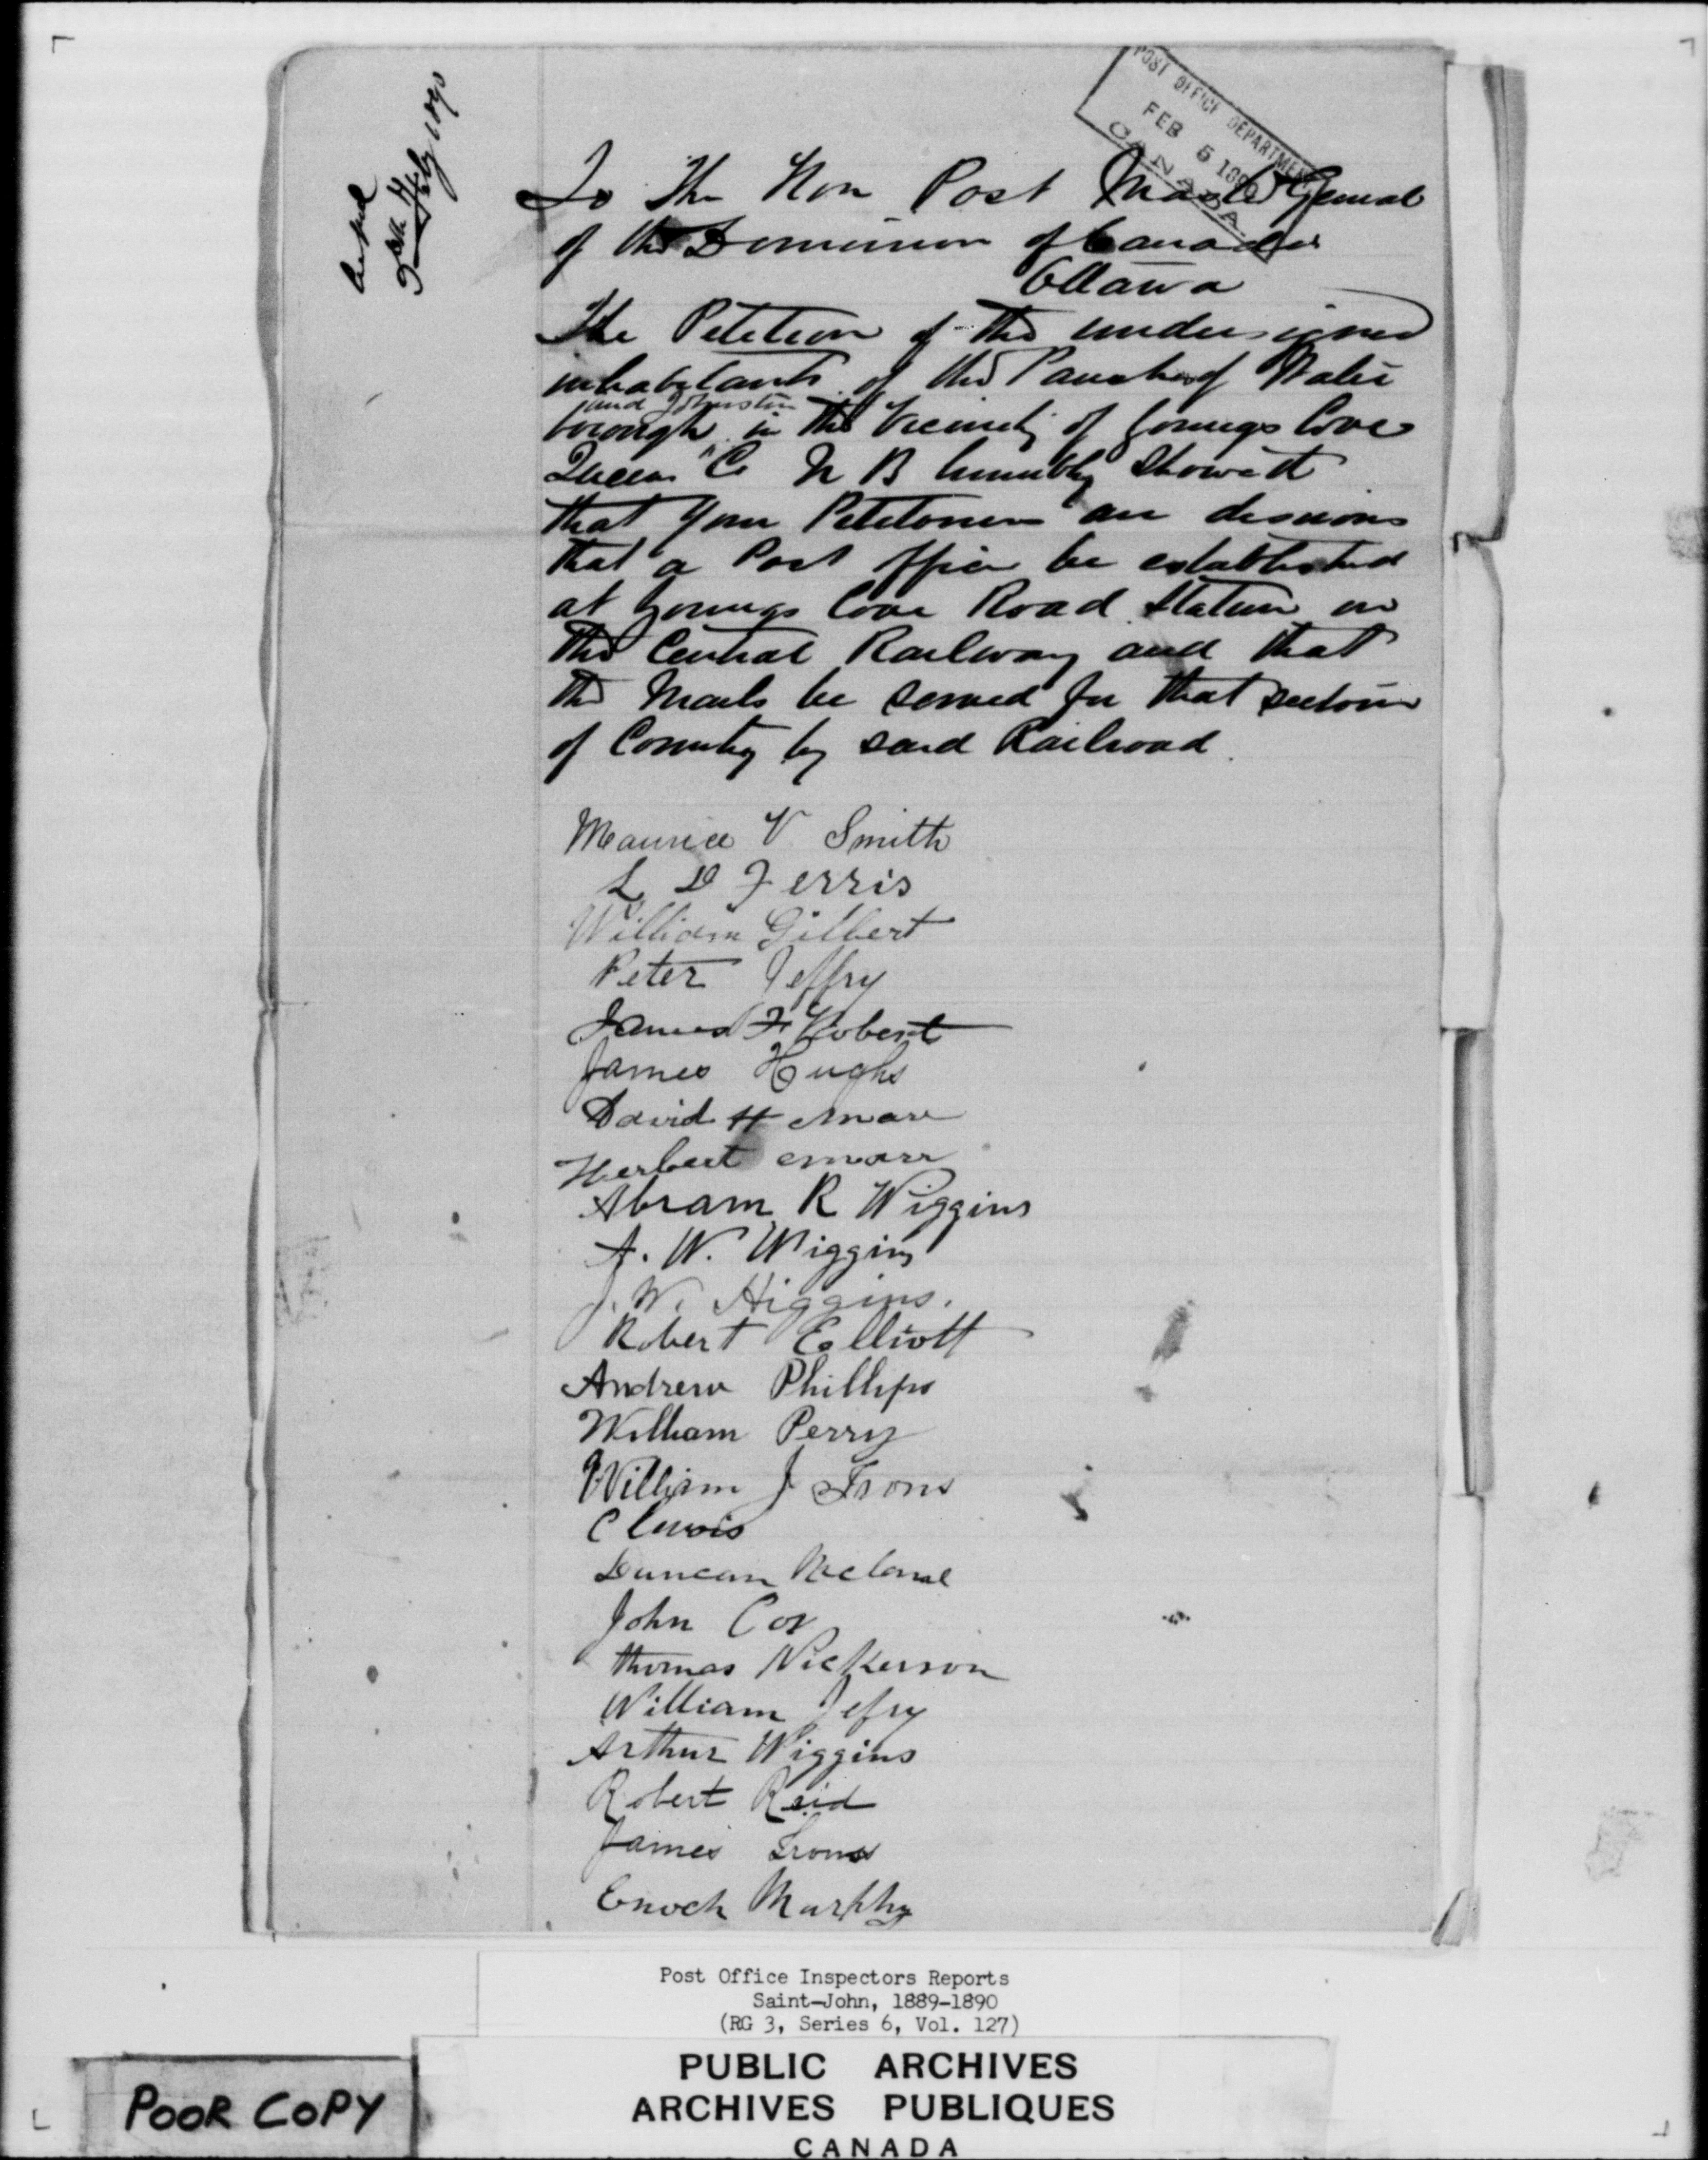 POST OFFICE DEPARTMENT
FEB 5 1890
CANADA
To The Hon Post Master General
of the Dominion of Canada
Ottawa
The Petition of the undersigned
inhabitants of the Parishes of Water
and Johnston
borough in the Vicinity of Youngs Cove
Queens Co N B humbly Sheweth
that your Petitioners are desirous
that a Post Office be established
at Youngs Cove Road Station on
the Central Railway and that
the Mails be served for that section
of Country by said Railroad.
Maurice V Smith
L D Ferris
William Gilbert
Peter Jeffry
James F Robert
James Hughs
David H Marr
Herbert Marr
Abram R Wiggins
A. W. Wiggins
J. W. Higgins.
Robert Elliott
Andrew Phillips
William Perry
William J Irons
C Lewis
Duncan
John Cox
thomas Nickerson
William Jefry
Arthur Wiggins
Robert Reid
James Irons
Enoch Murphy
Post Office Inspectors Reports
Saint-John, 1889-1890
(RG 3, Series 6, Vol. 127)
PUBLIC ARCHIVES
ARCHIVES PUBLIQUES
CANADA
POOR COPY